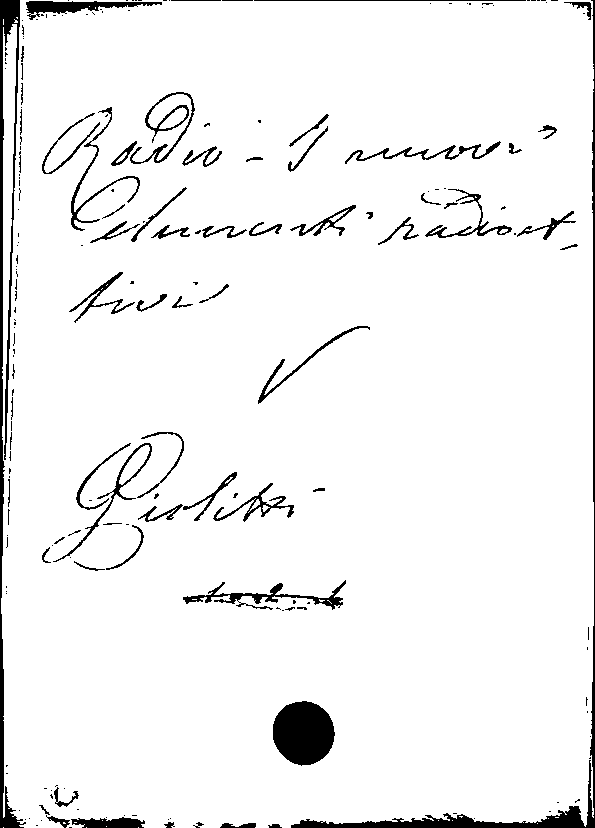 Radio - I nuovi
Elementi radioat-
tivi
Giolitti